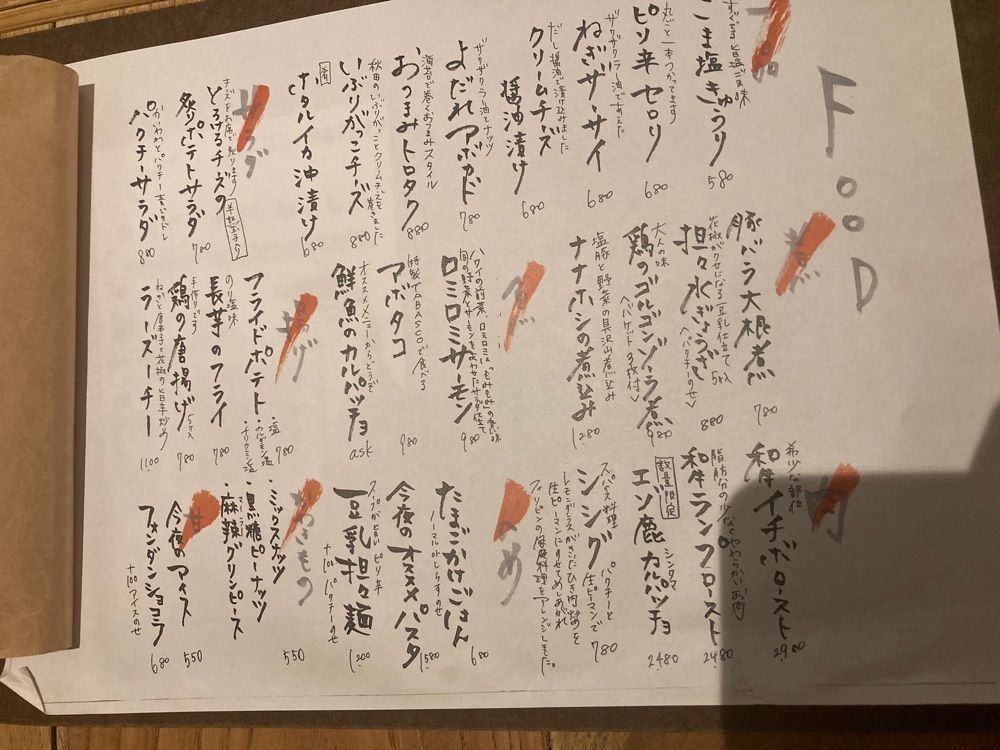 FOOD
一品
すぐでる 旨塩ごま味
ごま塩きゅうり
580
丸ごと一本つかってます
ピリ辛セロリ
680
ザクザクラー油であえた
ねぎザーサイ
680
だし醤油で漬け込みました
クリームチーズ
醤油漬け
680
ザクザクラー油とナッツ
よだれアボカド
780
海苔で巻くおつまみスタイル
おつまみトロタク
880
秋田のいぶりがっことクリームチーズを巻きました
いぶりがっこチーズ
880
ホタルイカ沖漬け
680
サラダ
チーズをお席で炙ります
とろけるチーズの
炙りポテトサラダ
半熟玉子入り
780
パクチーサラダ
880
煮
豚バラ大根煮
780
花椒がクセになる豆乳仕立て
担々水ぎょうざ
5ケ入
<パクチーのせ>
880
大人の味
鶏のゴルゴンゾーラ煮
<バゲット3枚付>
980
塩豚と野菜の具沢山煮込み
ナナホシの煮込み
1,280
魚
ハワイの前菜、ロミロミは「もみもみ」の意味
旬の野菜とサーモンをあわせたサラダ仕立て
ロミロミサーモン
980
特製TABASCOで食べる
アボタコ
980
オススメメニューからどうぞ
鮮魚のカルパッチョ
ask
揚げ
フライドポテト
・塩
・カルダモン塩
・チリクミン塩
780
のり塩味
長芋のフライ
780
手作りです
鶏の唐揚げ
5ケ入
780
ねぎと唐辛子と花椒の旨辛炒め
ラーズーチー
1100
肉
希少な部位
和牛イチボロースト
2980
脂肪分の少なくやわらかいお肉
和牛ランプロースト
2480
数量限定
エゾ鹿カルパッチョ
シンタマ
2480
スパイス料理
シシグ
パクチーと
生ピーマンで
780
レモングラスがきいたひき肉炒めを
生ピーマンにのせてめしあがれ
フィリピンの家庭料理をアレンジしました。
〆め
たまごかけごはん
ノーマルorしらすのせ
680
今夜のオススメパスタ
1,580
スープが旨い ピリ辛
豆乳担々麺
+100 パクチーのせ
1,200
かわきもの
・ミックスナッツ
・黒糖ピーナッツ
・麻辣グリンピース
マーラー
550
甘
今夜のアイス
550
フォンダンショコラ
+100アイスのせ
680